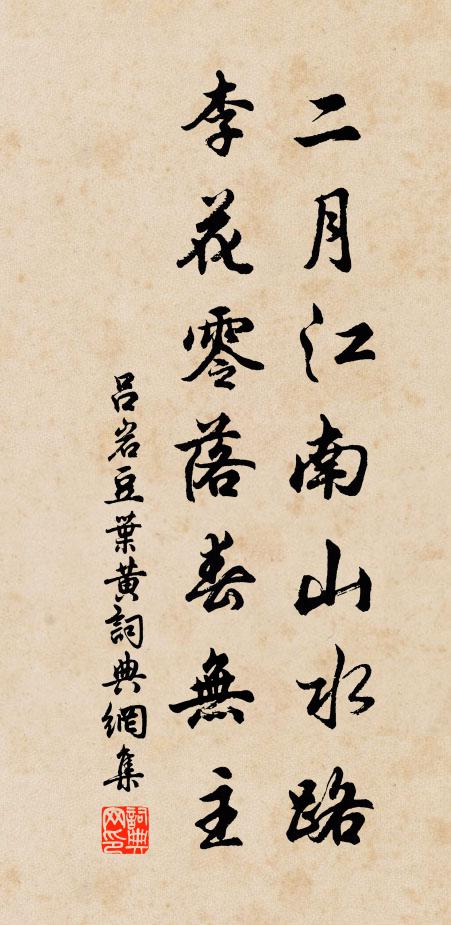 二月江南山水路
李花零落春無主
吕岩豆葉黄詞典網集
詞典网印